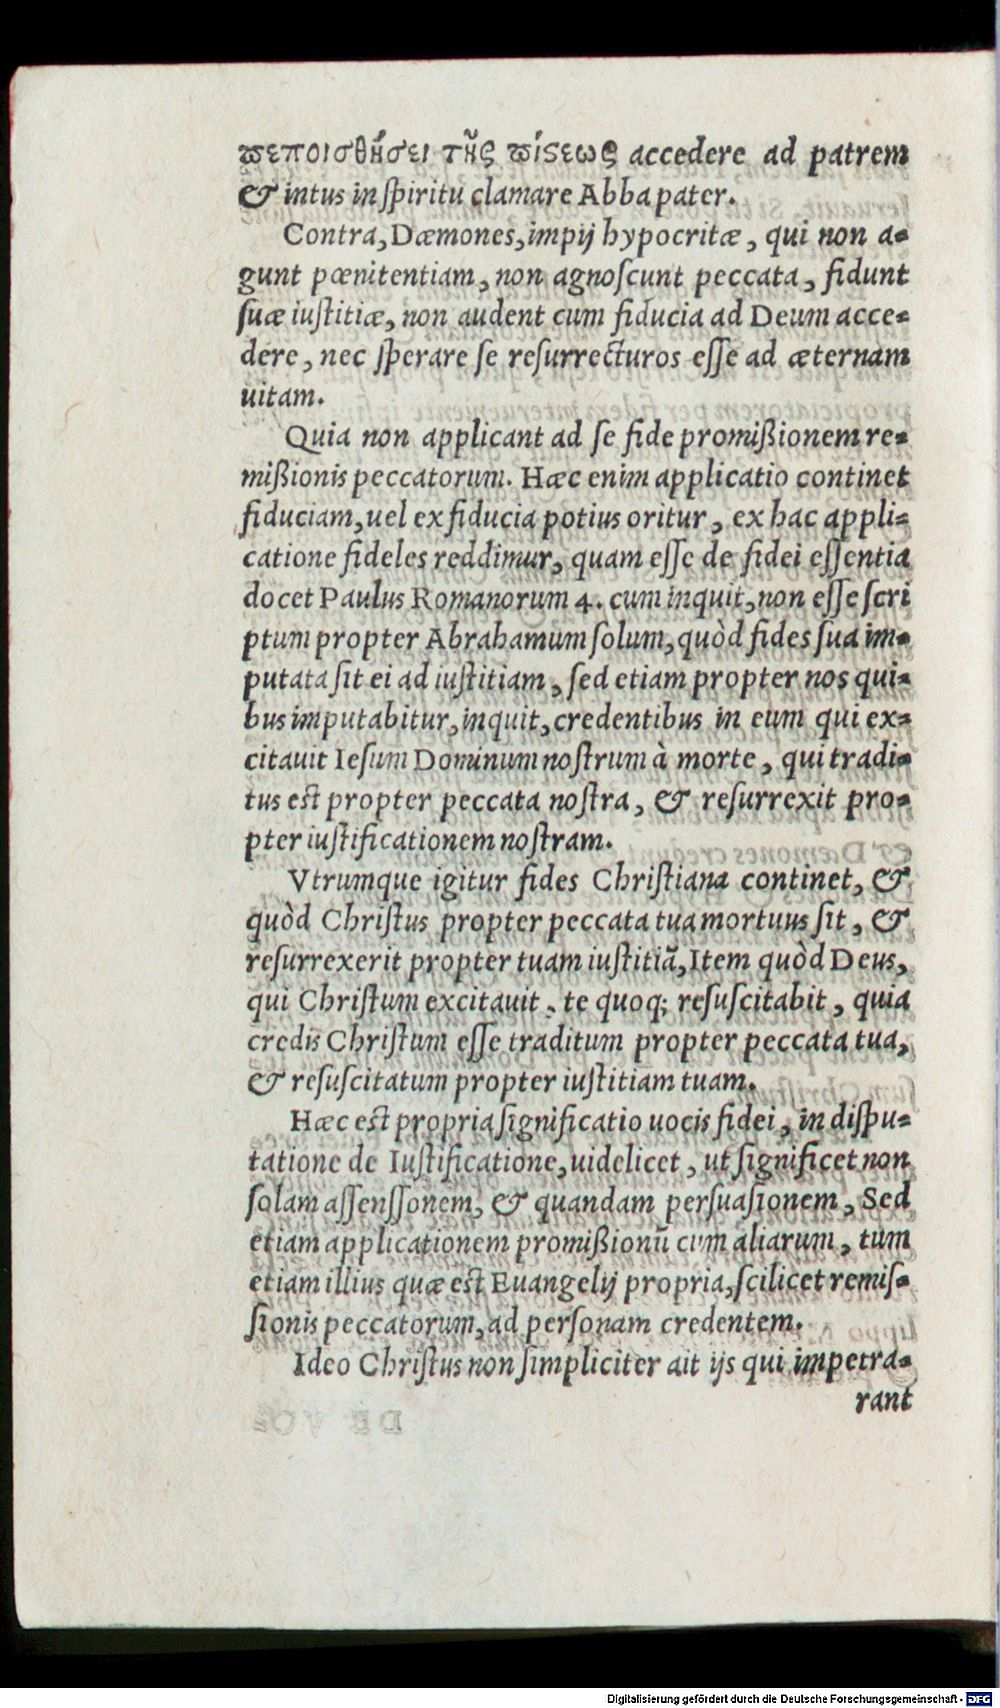 ϖεποισθήσει τῆς ϖίϛεως accedere ad patrem
& intus in ſpiritu clamare Abba pater.
Contra, Dæmones, impij hypocritæ, qui non a=
gunt pœnitentiam, non agnoſcunt peccata, fidunt
ſuæ iuſtitiæ, non audent cum fiducia ad Deum acce=
dere, nec ſperare ſe reſurrecturos eſſe ad æternam
uitam.
Quia non applicant ad ſe fide promißionem re=
mißionis peccatorum. Hæc enim applicatio continet
fiduciam, uel ex fiducia potius oritur, ex hac appli=
catione fideles reddimur, quam eſſe de fidei eſſentia
docet Paulus Romanorum 4. cum inquit, non eſſe ſcri
ptum propter Abrahamum ſolum, quòd fides ſua im=
putata ſit ei ad iuſtitiam, ſed etiam propter nos qui=
bus imputabitur, inquit, credentibus in eum qui ex=
citauit Ieſum Dominum noſtrum à morte, qui tradi=
tus est propter peccata noſtra, & reſurrexit pro=
pter iuſtificationem noſtram.
Vtrumque igitur fides Chriſtiana continet, &
quòd Chriſtus propter peccata tua mortuus ſit, &
reſurrexerit propter tuam iuſtitiã, Item quòd Deus,
qui Chriſtum excitauit, te quoq; reſuſcitabit, quia
credis Chriſtum eſſe traditum propter peccata tua,
& reſuſcitatum propter iuſtitiam tuam.
Hæc est propria ſignificatio uocis fidei, in diſpu=
tatione de Iuſtificatione, uidelicet, ut ſignificet non
ſolam aſſenſſonem, & quandam perſuaſionem, Sed
etiam applicationem promißionũ cum aliarum, tum
etiam illius quæ est Euangelij propria, ſcilicet remiſ=
ſionis peccatorum, ad perſonam credentem.
Ideo Chriſtus non ſimpliciter ait ijs qui impetra=
rant
Digitalisierung gefördert durch die Deutsche Forschungsgemeinschaft - DFG